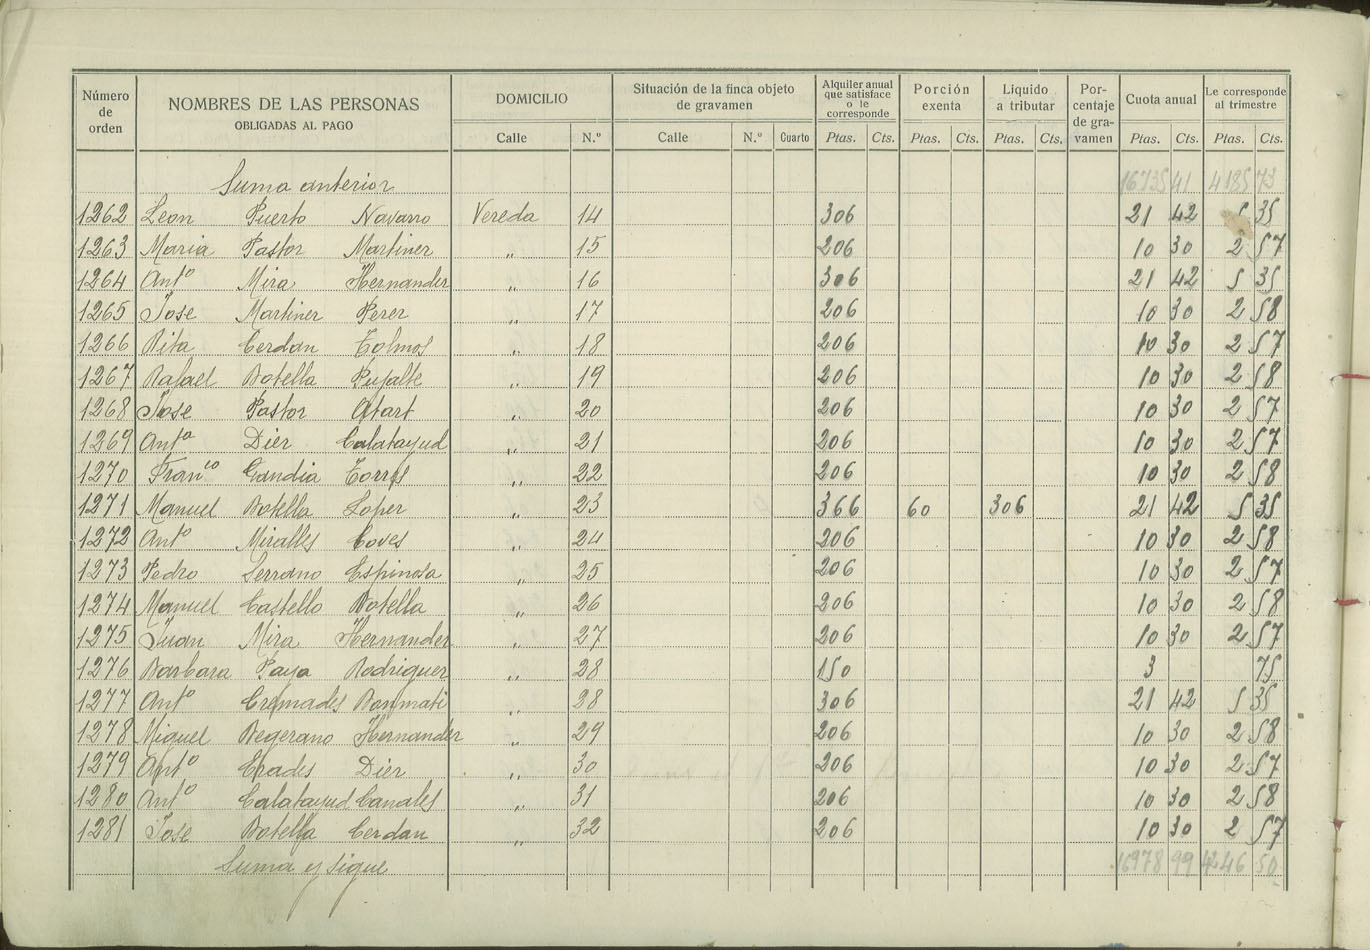 Número de orden NOMBRES DE LAS PERSONAS OBLIGADAS AL PAGO DOMICILIO Situación de la finca objeto de gravamen Alquiler anual que satisface o le corresponde Porción exenta Líquido a tributar Porcentaje de gravamen Cuota anual Le corresponde al trimestre
Calle N.º Calle N.º Cuarto Ptas. Cts. Ptas. Cts. Ptas. Cts. Ptas. Cts. Ptas. Cts.
Suma anterior 16735 41 4185 73
1262 Leon Puerto Navarro Vereda 14 306 21 42 5 35
1263 Maria Pastor Martinez " 15 206 10 30 2 57
1264 Antº Mira Hernandez " 16 306 21 42 5 35
1265 Jose Martinez Perez " 17 206 10 30 2 58
1266 Rita Cerdan Tolmos " 18 206 10 30 2 57
1267 Rafael Botella Pujalte " 19 206 10 30 2 58
1268 Jose Pastor Alart " 20 206 10 30 2 57
1269 Antª Diez Calatayud " 21 206 10 30 2 57
1270 Franco Gandia Torres " 22 206 10 30 2 58
1271 Manuel Botella Lopez " 23 366 60 306 21 42 5 35
1272 Antº Miralles Coves " 24 206 10 30 2 58
1273 Pedro Serrano Espinosa " 25 206 10 30 2 57
1274 Manuel Castello Botella " 26 206 10 30 2 58
1275 Juan Mira Hernandez " 27 206 10 30 2 57
1276 Barbara Paya Rodriguez " 28 150 3 75
1277 Antº Cremades Bonmati " 28 306 21 42 5 35
1278 Miguel Begerano Hernandez " 29 206 10 30 2 58
1279 Antº Erades Diez " 30 206 10 30 2 57
1280 Antº Calatayud Canales " 31 206 10 30 2 58
1281 Jose Botella Cerdan " 32 206 10 30 2 57
Suma y sigue 16978 99 4246 50